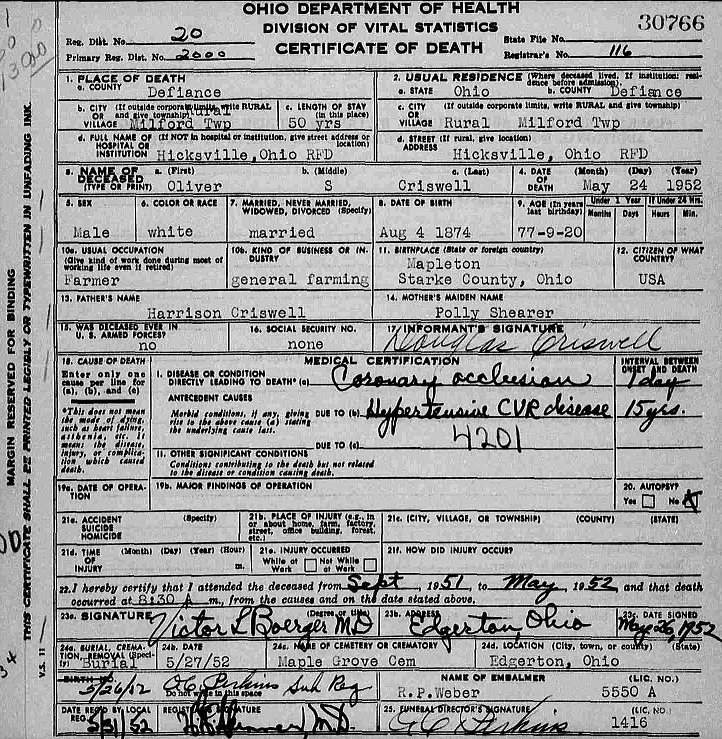 OHIO DEPARTMENT OF HEALTH
DIVISION OF VITAL STATISTICS
CERTIFICATE OF DEATH
30766
Reg. Dist. No. 20
State File No.
Primary Reg. Dist. No. 2000
Registrar's No. 116
1. PLACE OF DEATH
a. COUNTY Defiance
2. USUAL RESIDENCE (Where deceased lived. If institution: residence before admission).
a. STATE Ohio b. COUNTY Defiance
b. CITY (If outside corporate limits, write RURAL and give township) OR VILLAGE Rural Milford Twp
c. LENGTH OF STAY (in this place) 50 yrs
c. CITY (If outside corporate limits, write RURAL and give township) OR VILLAGE Rural Milford Twp
d. FULL NAME OF (If NOT in hospital or institution, give street address or location) HOSPITAL OR INSTITUTION Hicksville,Ohio RFD
d. STREET (If rural, give location) ADDRESS Hicksville, Ohio RFD
3. NAME OF DECEASED (TYPE OR PRINT)
a. (First) Oliver
b. (Middle) S
c. (Last) Criswell
4. DATE OF DEATH (Month) (Day) (Year) May 24 1952
5. SEX Male
6. COLOR OR RACE white
7. MARRIED, NEVER MARRIED, WIDOWED, DIVORCED (Specify) married
8. DATE OF BIRTH Aug 4 1874
9. AGE (In years last birthday) 77-9-20
Under 1 Year Months Days
If Under 24 Hrs. Hours Min.
10a. USUAL OCCUPATION (Give kind of work done during most of working life even if retired) Farmer
10b. KIND OF BUSINESS OR INDUSTRY general farming
11. BIRTHPLACE (State or foreign country) Mapleton Starke County, Ohio
12. CITIZEN OF WHAT COUNTRY? USA
13. FATHER'S NAME Harrison Criswell
14. MOTHER'S MAIDEN NAME Polly Shearer
15. WAS DECEASED EVER IN U. S. ARMED FORCES? no
16. SOCIAL SECURITY NO. none
17. INFORMANT'S SIGNATURE Douglas Criswell
18. CAUSE OF DEATH
Enter only one cause per line for (a), (b), and (c)
*This does not mean the mode of dying, such as heart failure, asthenia, etc. It means the disease, injury, or complication which caused death.
MEDICAL CERTIFICATION
INTERVAL BETWEEN ONSET AND DEATH
I. DISEASE OR CONDITION DIRECTLY LEADING TO DEATH* (a) Coronary occlusion 1 day
ANTECEDENT CAUSES
Morbid conditions, if any, giving rise to the above cause (a) stating the underlying cause last.
DUE TO (b) Hypertensive CVR disease 15 yrs.
4201
DUE TO (c)
II. OTHER SIGNIFICANT CONDITIONS
Conditions contributing to the death but not related to the disease or condition causing death.
19a. DATE OF OPERATION
19b. MAJOR FINDINGS OF OPERATION
20. AUTOPSY? Yes No X
21a. ACCIDENT SUICIDE HOMICIDE (Specify)
21b. PLACE OF INJURY (e.g., in or about home, farm, factory, street, office building, forest, etc.)
21c. (CITY, VILLAGE, OR TOWNSHIP) (COUNTY) (STATE)
21d. TIME OF INJURY (Month) (Day) (Year) (Hour) m.
21e. INJURY OCCURRED While at Work Not While at Work
21f. HOW DID INJURY OCCUR?
22. I hereby certify that I attended the deceased from Sept, 1951, to May, 1952 and that death
occurred at 8:30 A m., from the causes and on the date stated above.
23a. SIGNATURE (Degree or title) Victor L Boerger M D
23b. ADDRESS Edgerton, Ohio
23c. DATE SIGNED May 26, 1952
24a. BURIAL, CREMATION, REMOVAL (Specify) Burial
24b. DATE 5/27/52
24c. NAME OF CEMETERY OR CREMATORY Maple Grove Cem
24d. LOCATION (City, town, or county) (State) Edgerton, Ohio
BIRTH NO. 5/26/52
Do not write in this space
O.C. Perkins Sub Reg
NAME OF EMBALMER (LIC. NO.)
R.P.Weber 5550 A
DATE REC'D BY LOCAL REG. 5/31/52
REGISTRAR'S SIGNATURE M.D.
25. FUNERAL DIRECTOR'S SIGNATURE (LIC. NO.)
O C Perkins 1416
MARGIN RESERVED FOR BINDING
THIS CERTIFICATE SHALL BE PRINTED LEGIBLY OR TYPEWRITTEN IN UNFADING INK.
V.S. 11